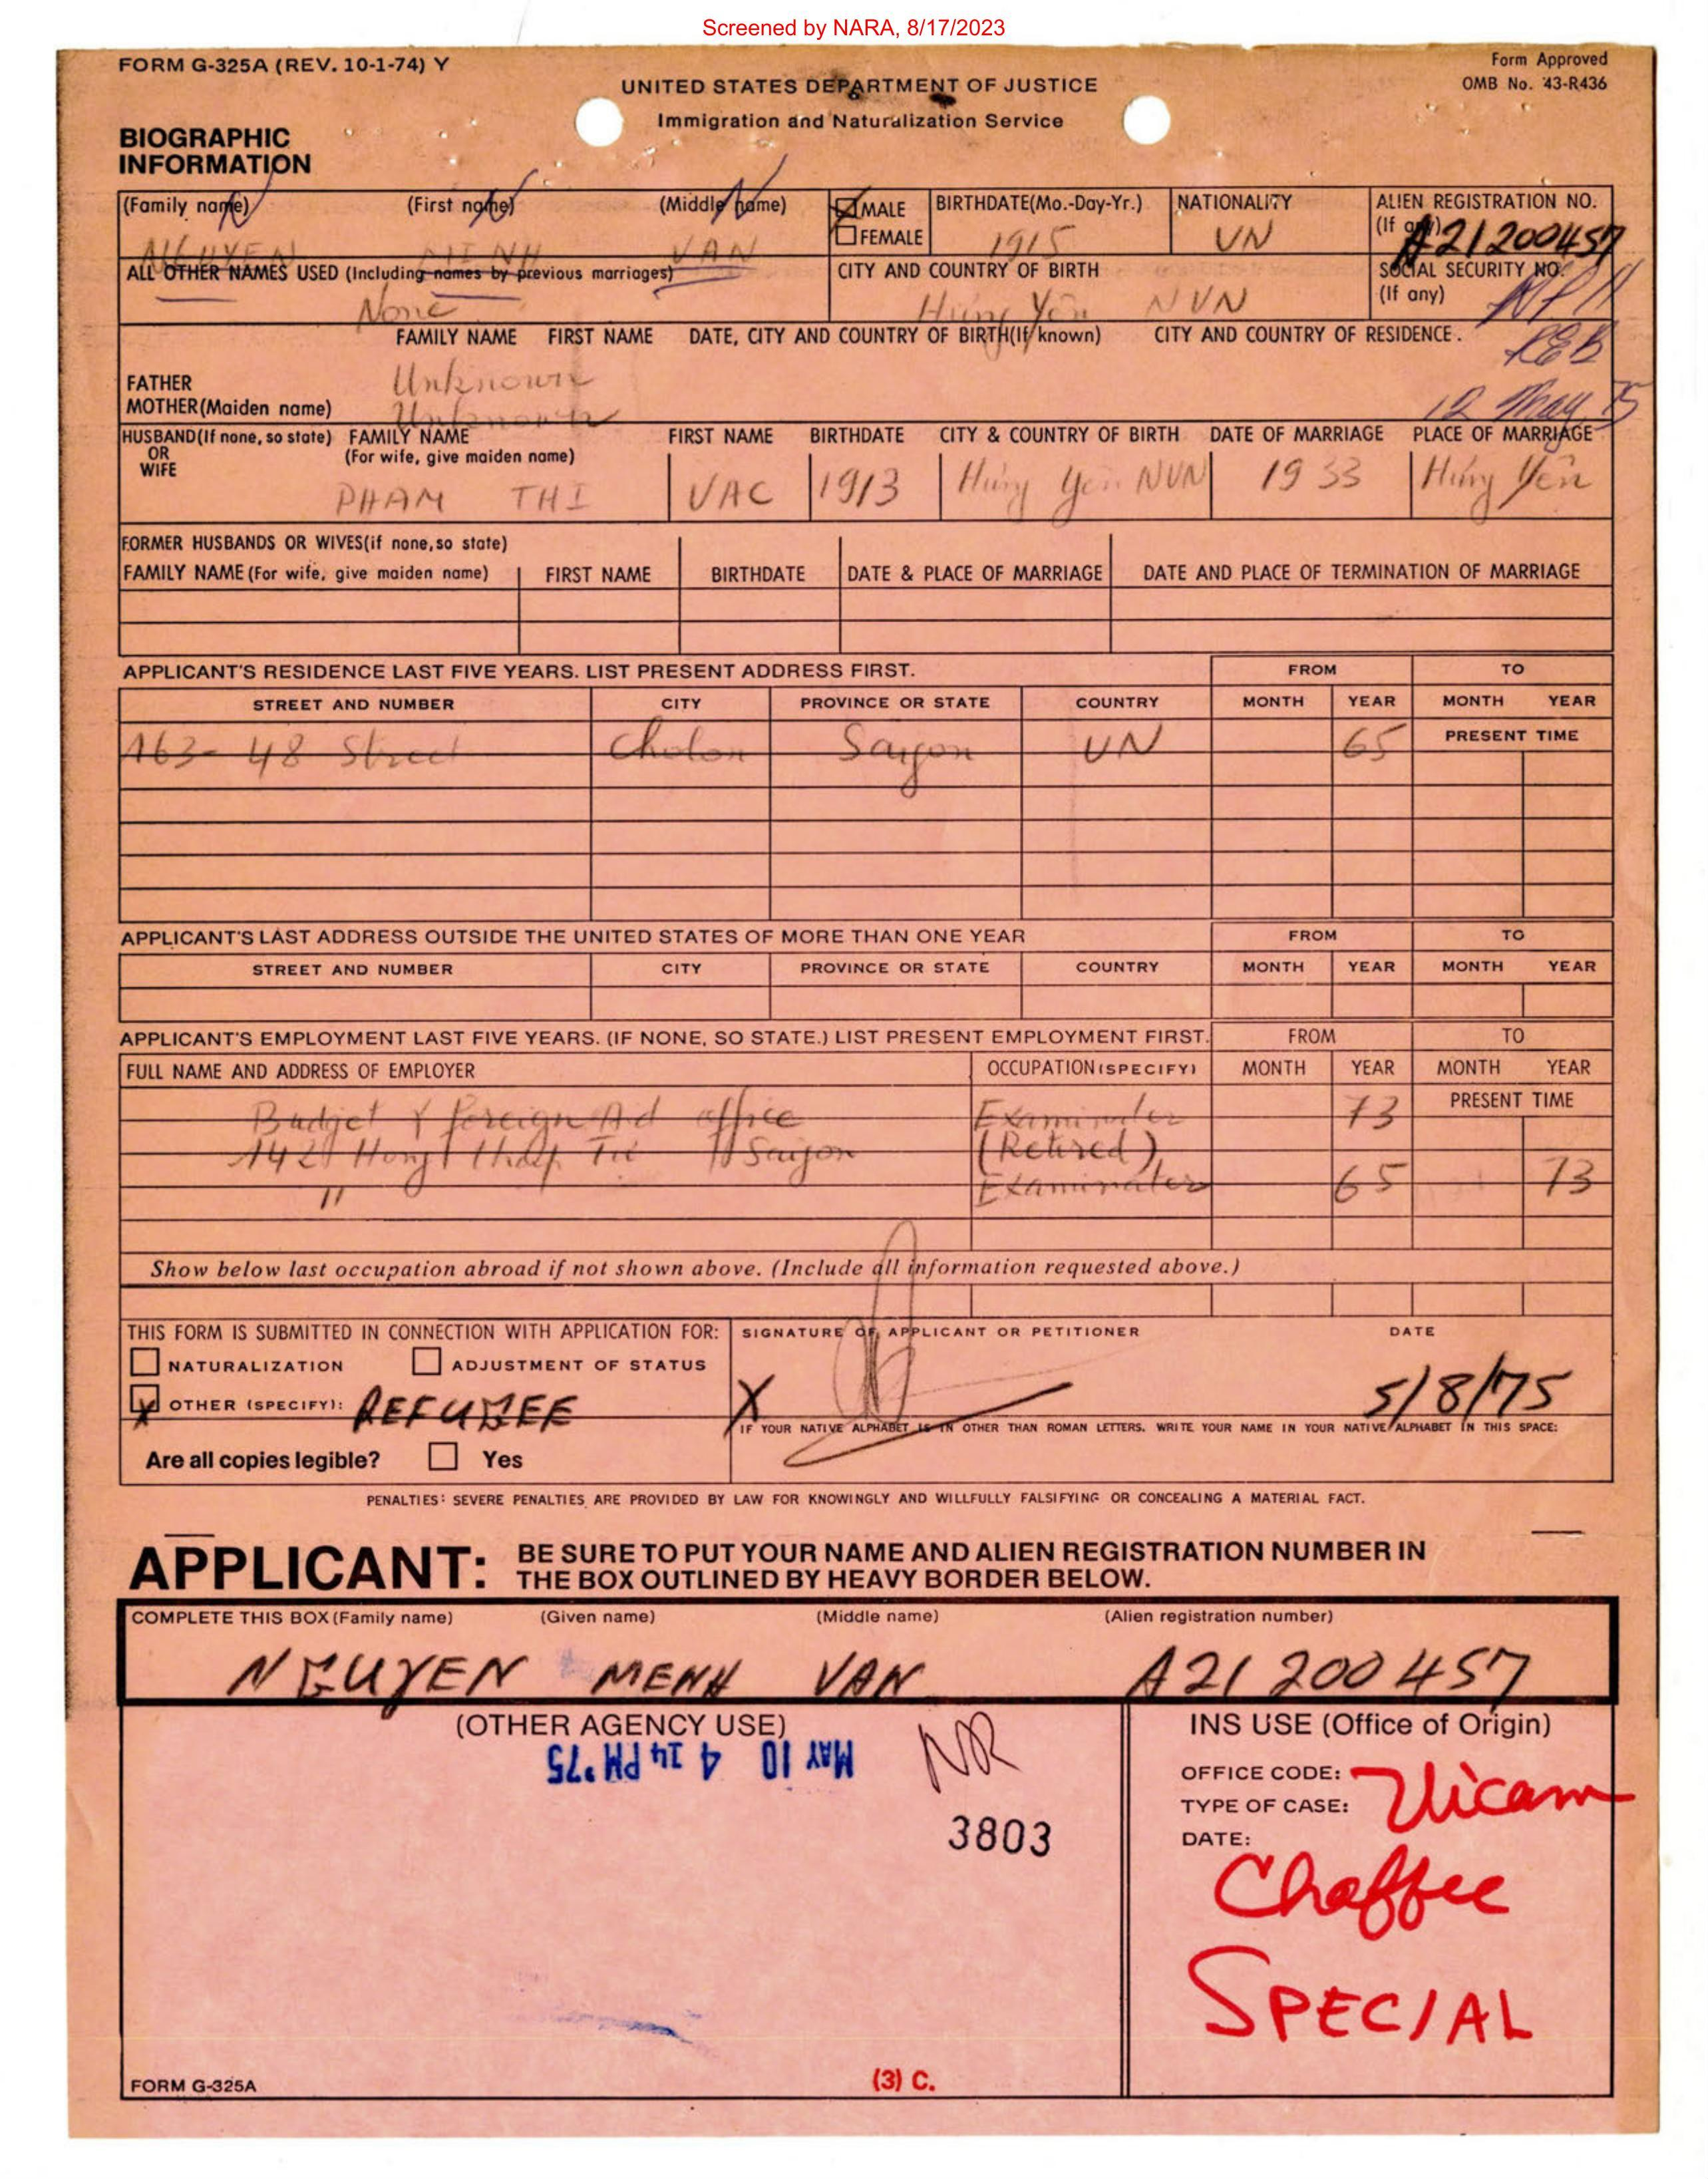 Screened by NARA, 8/17/2023
FORM G-325A (REV. 10-1-74) Y
Form Approved
OMB No. 43-R436
UNITED STATES DEPARTMENT OF JUSTICE
Immigration and Naturalization Service
BIOGRAPHIC
INFORMATION
(Family name) (First name) (Middle name) MALE BIRTHDATE(Mo.-Day-Yr.) NATIONALITY ALIEN REGISTRATION NO.
(If any)
FEMALE
NGUYEN VAN 1915 VN A21200457
ALL OTHER NAMES USED (Including names by previous marriages) CITY AND COUNTRY OF BIRTH SOCIAL SECURITY NO.
(If any)
None Hưng Yên NVN
FAMILY NAME FIRST NAME DATE, CITY AND COUNTRY OF BIRTH(If known) CITY AND COUNTRY OF RESIDENCE.
REB
FATHER Unknown
MOTHER(Maiden name) Unknown
12 May 75
HUSBAND(If none, so state) FAMILY NAME FIRST NAME BIRTHDATE CITY & COUNTRY OF BIRTH DATE OF MARRIAGE PLACE OF MARRIAGE
OR (For wife, give maiden name)
WIFE
PHAM THI VAC 1913 Hưng Yên NVN 1933 Hưng Yên
FORMER HUSBANDS OR WIVES(if none,so state)
FAMILY NAME (For wife, give maiden name) FIRST NAME BIRTHDATE DATE & PLACE OF MARRIAGE DATE AND PLACE OF TERMINATION OF MARRIAGE
APPLICANT'S RESIDENCE LAST FIVE YEARS. LIST PRESENT ADDRESS FIRST. FROM TO
STREET AND NUMBER CITY PROVINCE OR STATE COUNTRY MONTH YEAR MONTH YEAR
163- 48 Street Cholon Saigon VN 65 PRESENT TIME
APPLICANT'S LAST ADDRESS OUTSIDE THE UNITED STATES OF MORE THAN ONE YEAR FROM TO
STREET AND NUMBER CITY PROVINCE OR STATE COUNTRY MONTH YEAR MONTH YEAR
APPLICANT'S EMPLOYMENT LAST FIVE YEARS. (IF NONE, SO STATE.) LIST PRESENT EMPLOYMENT FIRST. FROM TO
FULL NAME AND ADDRESS OF EMPLOYER OCCUPATION (SPECIFY) MONTH YEAR MONTH YEAR
Budget & foreign Aid office Examinater 73 PRESENT TIME
Saigon (Retired)
" Examinater 65 73
Show below last occupation abroad if not shown above. (Include all information requested above.)
THIS FORM IS SUBMITTED IN CONNECTION WITH APPLICATION FOR: SIGNATURE OF APPLICANT OR PETITIONER DATE
NATURALIZATION ADJUSTMENT OF STATUS
X OTHER (SPECIFY): REFUGEE X 5/8/75
IF YOUR NATIVE ALPHABET IS IN OTHER THAN ROMAN LETTERS, WRITE YOUR NAME IN YOUR NATIVE ALPHABET IN THIS SPACE:
Are all copies legible? Yes
PENALTIES: SEVERE PENALTIES ARE PROVIDED BY LAW FOR KNOWINGLY AND WILLFULLY FALSIFYING OR CONCEALING A MATERIAL FACT.
APPLICANT: BE SURE TO PUT YOUR NAME AND ALIEN REGISTRATION NUMBER IN
THE BOX OUTLINED BY HEAVY BORDER BELOW.
COMPLETE THIS BOX (Family name) (Given name) (Middle name) (Alien registration number)
NGUYEN MENH VAN A21 200 457
(OTHER AGENCY USE) INS USE (Office of Origin)
MAY 10 4 14 PM '75
NR
OFFICE CODE:
TYPE OF CASE:
DATE:
Vicam
3803
Chaffee
SPECIAL
FORM G-325A
(3) C.